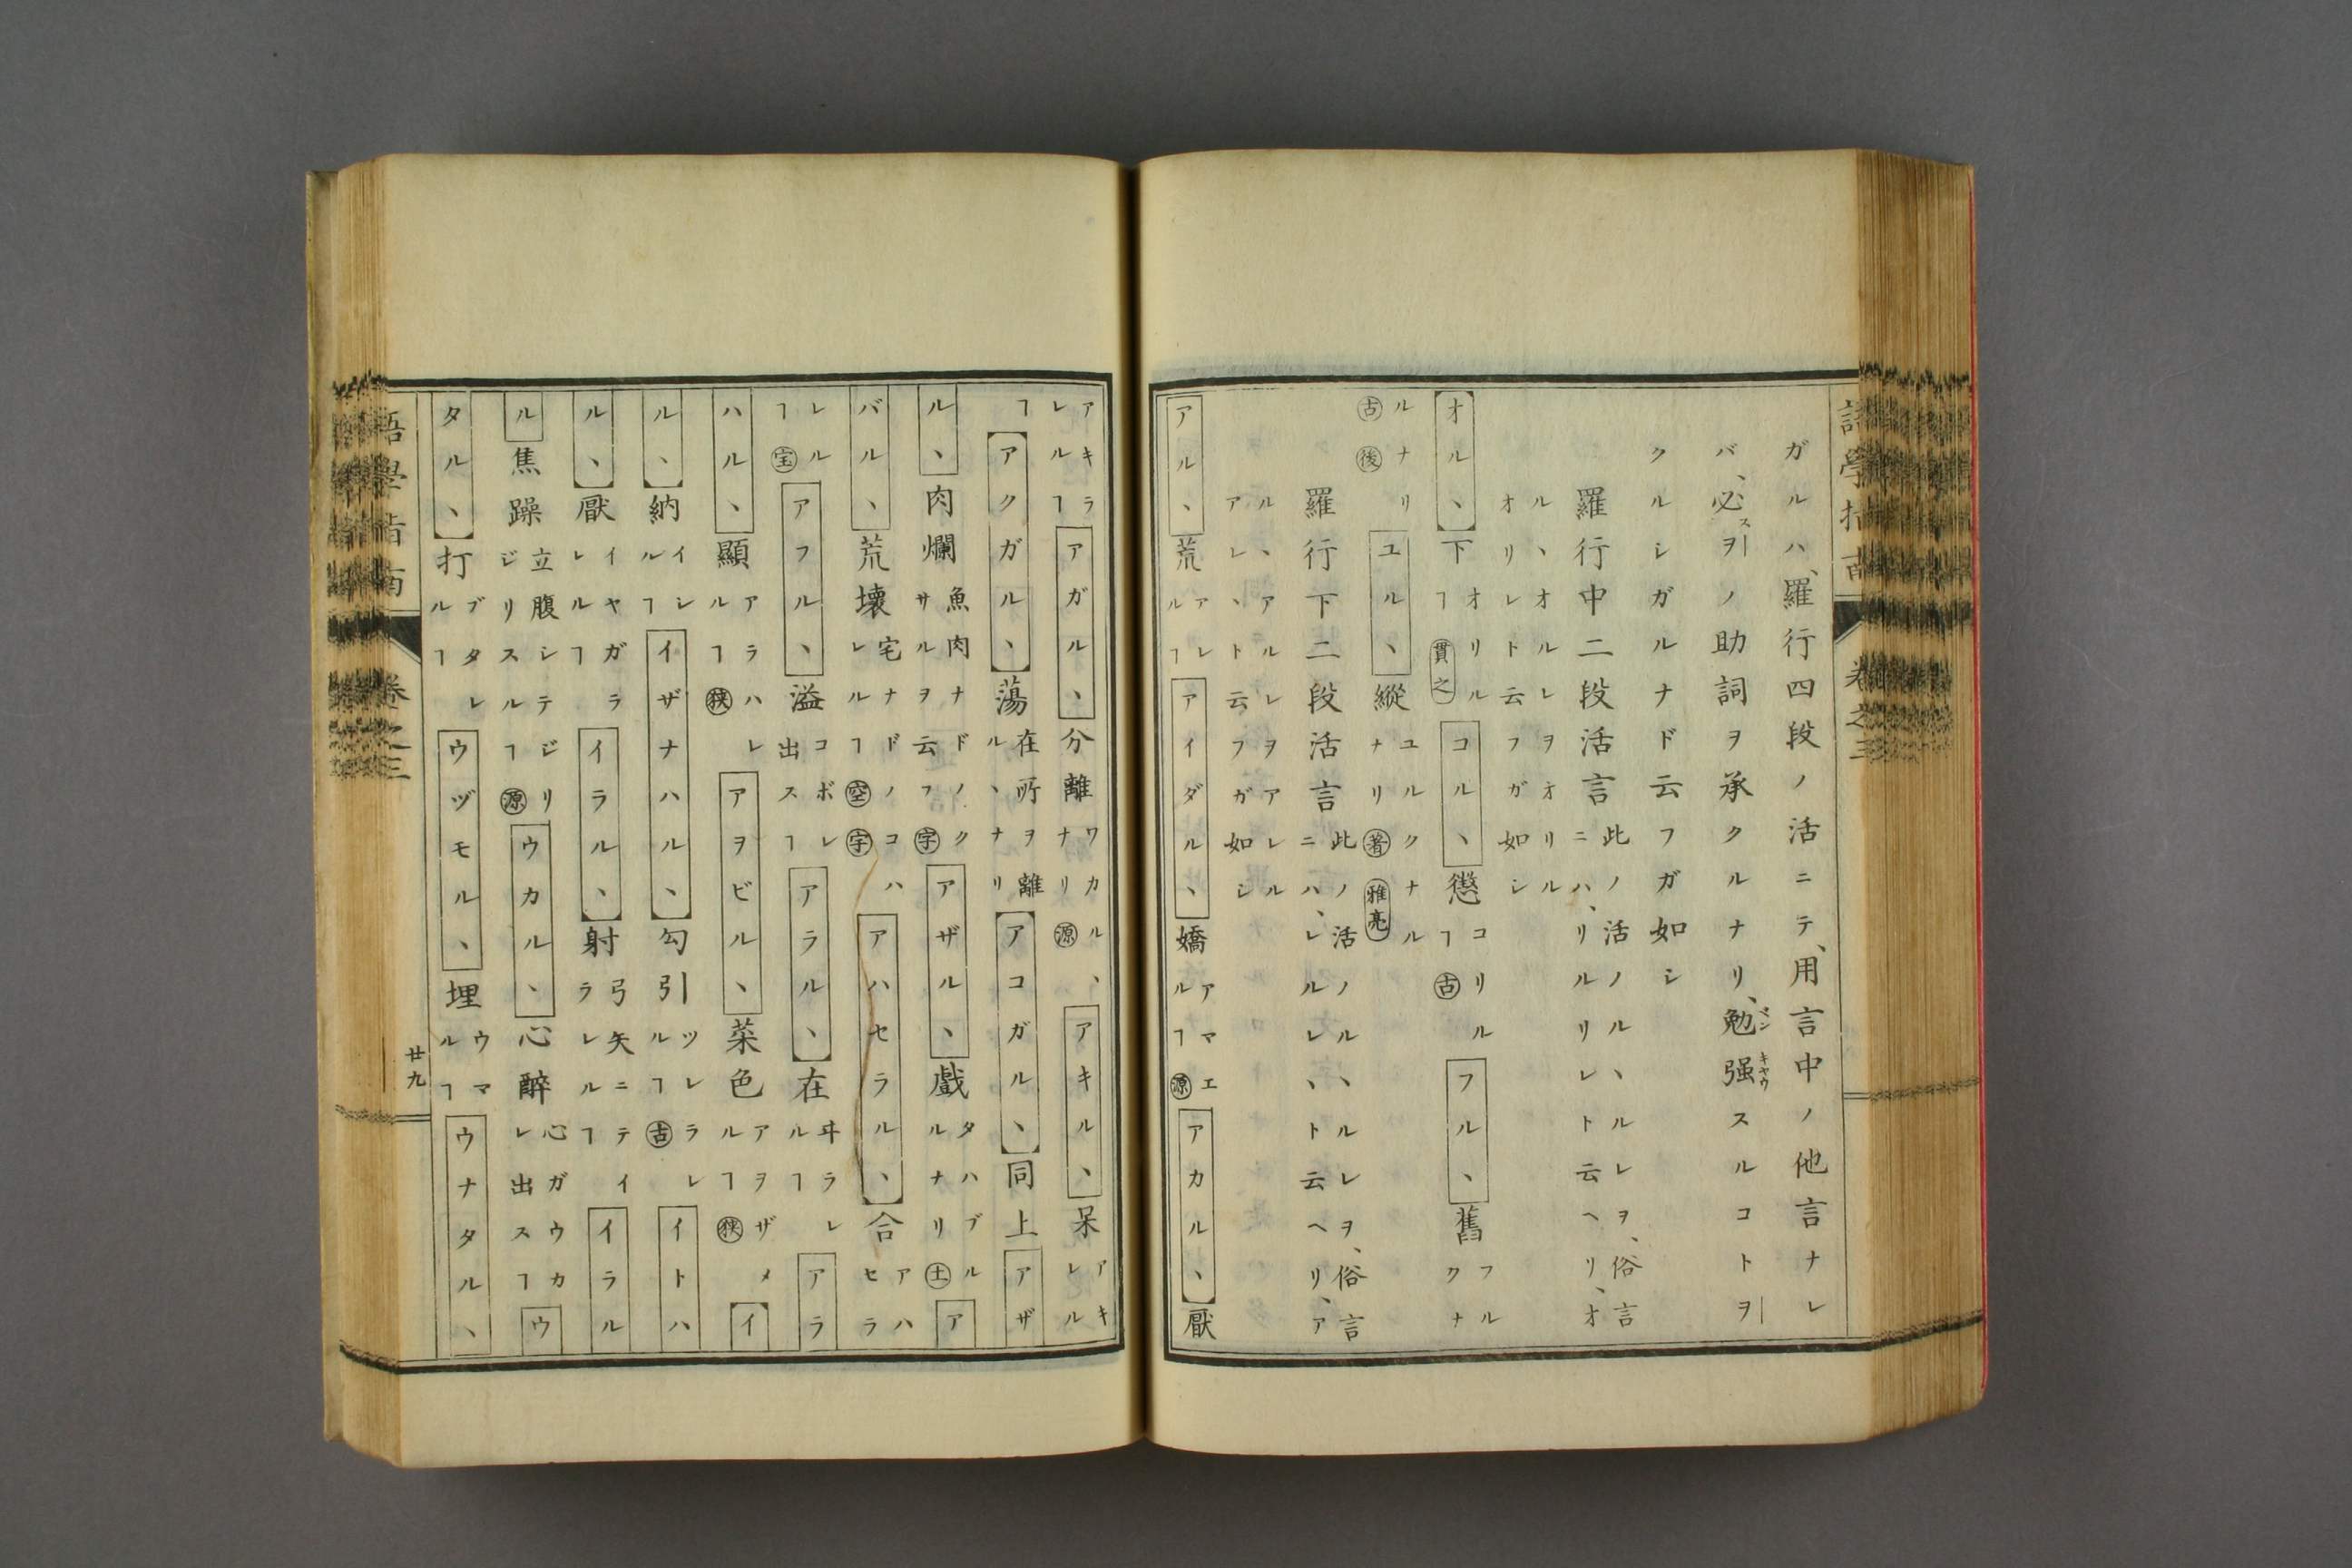 語學指南 卷之三
ガルハ、羅行四段ノ活ニテ、用言中ノ他言ナレ
バ、必ズヲノ助詞ヲ承クルナリ、勉強スルコトヲ
クルシガルナド云フガ如シ
羅行中二段活言 此ノ活ノルヽルレヲ、俗言ニハ、リルリレト云ヘリ、オ
ルヽオルレヲオリルオリレト云フガ如シ
オルヽ 下 オリルヿ 貫之 コルヽ 懲 コリルヿ 古 フルヽ 舊 フルクナ
ルナリ 古 後 ユルヽ 縱 ユルクナルナリ 著 雅亮
羅行下二段活言 此ノ活ノルヽルレヲ、俗言ニハ、レルレヽト云ヘリ、ア
ルヽアルレヲアレルアレヽト云フガ如シ
アルヽ 荒 アレルヿ アイダルヽ 嬌 アマエルヿ 源 アカルヽ 厭
アキラレルヿ アガルヽ 分離 ワカルヽナリ 源 アキルヽ 呆 アキレル
ヿ アクガルヽ 蕩 在所ヲ離ルヽナリ アコガルヽ 同上 アザ
ルヽ 肉爛 魚肉ナドノクサルヲ云フ 字 アザルヽ 戲 タハブルルナリ 土 ア
バルヽ 荒壞 宅ナドノコハレルヿ 空 字 アハセラルヽ 合 アハセラ
レルヿ 宝 アフルヽ 溢 コボレ出スヿ アラルヽ 在 ヰラレルヿ アラ
ハルヽ 顯 アラハレルヿ 狹 アヲビルヽ 菜色 アヲザメルヿ 狹 イ
ルヽ 納 イシルヿ イザナハルヽ 勾引 ツレラレルヿ 古 イトハ
ルヽ 厭 イヤガラレルヿ イラルヽ 射 弓矢ニテイラレルヿ イラル
ル 焦躁 立腹シテジリジリスルヿ 源 ウカルヽ 心醉 心ガウカレ出スヿ ウ
タルヽ 打 ブタレルヿ ウヅモルヽ 埋 ウマルヿ ウナタルヽ
語學指南 卷之三 廿九